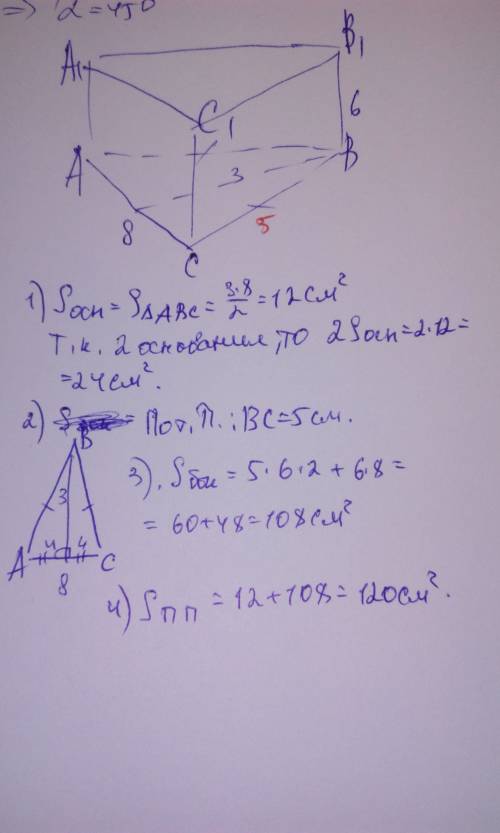 => α=45°
A₁
B₁
C₁
6
A
B
3
8
5
C
1) Sосн = S△ABC = 3·8/2 = 12 см²
Т.к. 2 основания, то 2Sосн = 2·12 =
= 24 см².
2) = По т. П.: BC = 5 см.
B
3
A
4
4
C
8
3). Sбок = 5·6·2 + 6·8 =
= 60+48 = 108 см²
4) Sпп = 12+108 = 120 см².